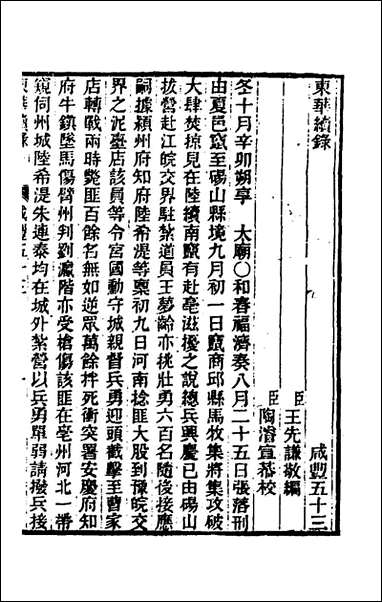 東華續錄
咸豐五十三
臣王先謙敬編
臣陶濬宣恭校
冬十月辛卯朔享　太廟○和春福濟奏八月二十五日張落刑
由夏邑竄至碭山縣境九月初一日竄商邱縣馬牧集將集攻破
大肆焚掠見在陸續南竄有赴亳滋擾之說總兵興慶已由碭山
拔營赴江皖交界駐紮道員王夢齡亦挑壯勇六百名隨後接應
嗣據潁州府知府陸希湜等稟初九日河南捻匪大股到豫皖交
界之泥臺店該員等令宮國勳守城親督兵勇迎頭截擊至曹家
店轉戰兩時斃匪百餘名無如逆眾萬餘拌死衝突署安慶府知
府牛鎮墜馬傷臂州判劉瀛階亦受槍傷該匪在亳州河北一帶
窺伺州城陸希湜朱連泰均在城外紮營以兵勇單弱請撥兵接
東華續錄　咸豐五十三　一